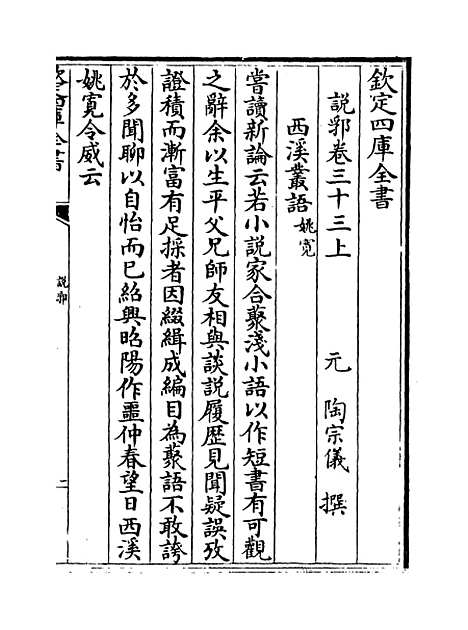 欽定四庫全書
説郛卷三十三上　元　陶宗儀　撰
西溪叢語姚寬
嘗讀新論云若小說家合藂淺小語以作短書有可觀
之辭余以生平父兄師友相與談說履歷見聞疑誤攷
證積而漸富有足採者因綴緝成編目為藂語不敢誇
於多聞聊以自怡而已紹興昭陽作噩仲春望日西溪
姚寬令威云
説郛